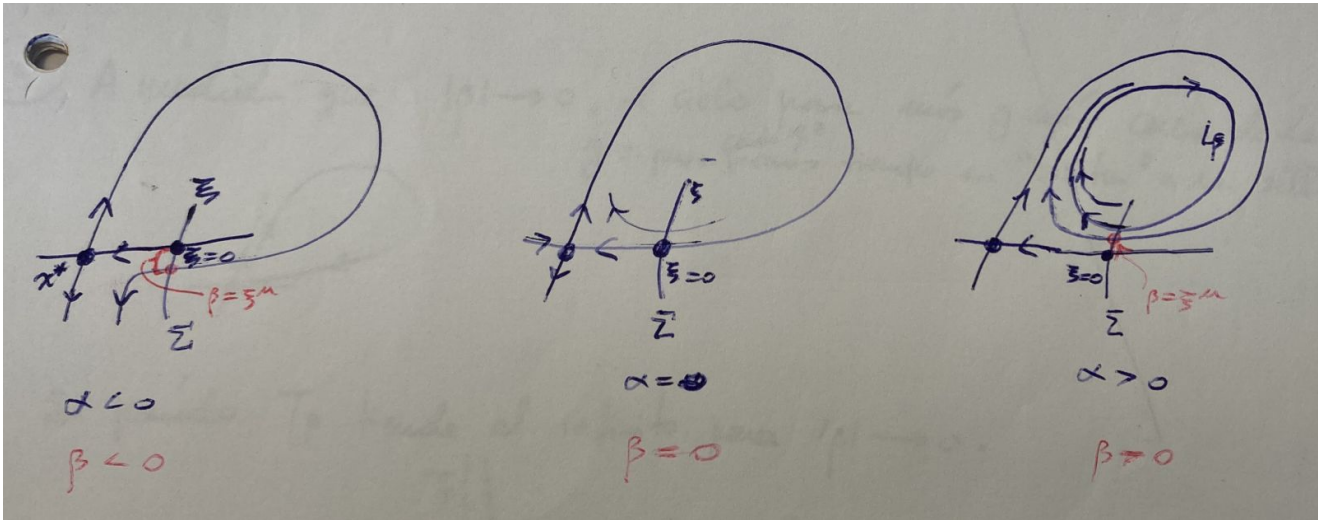 ξ
x*
ξ=0
β=ξᵘ
Σ
α<0
β<0
ξ
ξ=0
Σ
α=0
β=0
Lβ
ξ=0
β=ξᵘ
Σ
α>0
β>0